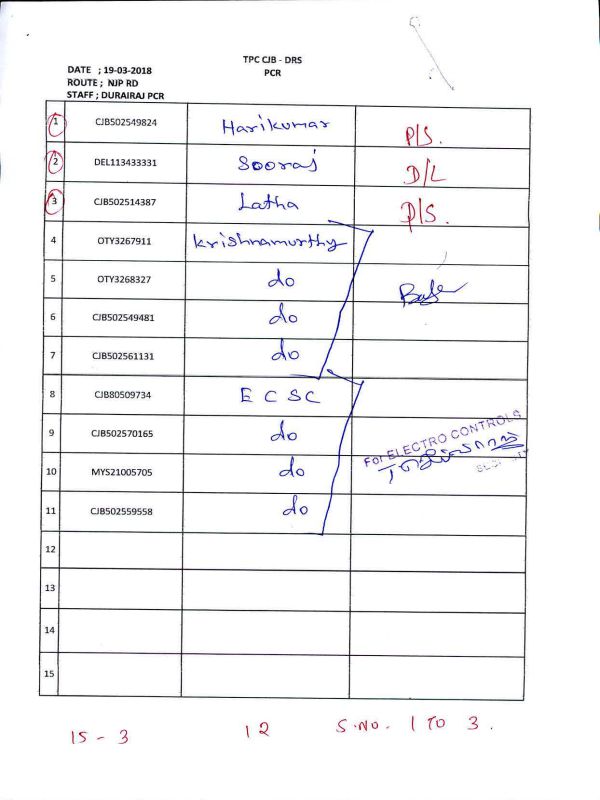 TPC CJB - DRS
PCR
DATE ; 19-03-2018
ROUTE ; NJP RD
STAFF ; DURAIRAJ PCR
1 CJB502549824 Harikumar P/S.
2 DEL113433331 Sooraj D/L
3 CJB502514387 Latha P/S.
4 OTY3267911 Krishnamurthy
5 OTY3268327 do
6 CJB502549481 do
7 CJB502561131 do
8 CJB80509734 E C S C
9 CJB502570165 do
For ELECTRO CONTROLS
10 MYS21005705 do
11 CJB502559558 do
12
13
14
15
15 - 3 12 S.NO. 1 TO 3.